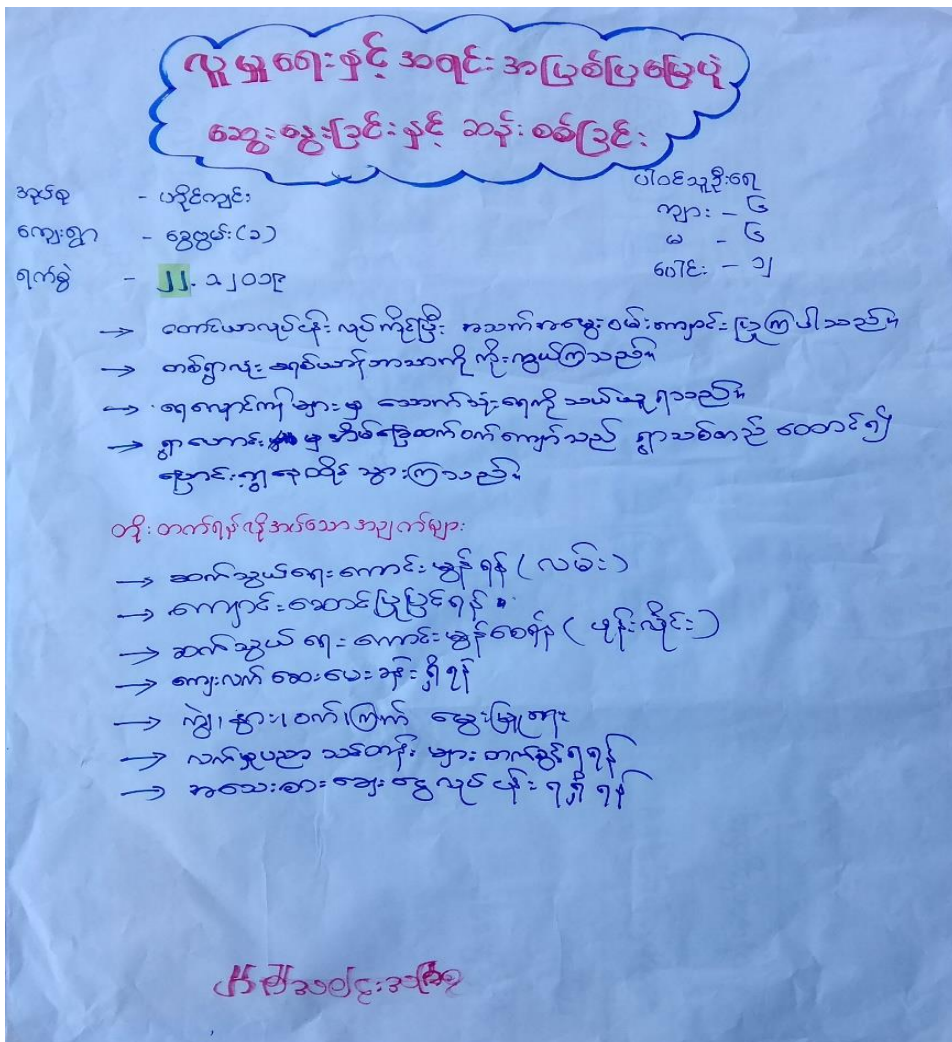 လူမှုရေးနှင့် အရင်းအမြစ်ပြမြေပုံ
ဆွေးနွေးခြင်းနှင့် ဆန်းစစ်ခြင်း
အုပ်စု - ပတိုင်ကျင်း
ကျေးရွာ - ခွေဗွမ်း(၁)
ရက်စွဲ - ၂၂.၁၂၂၀၁၉
ပါဝင်သူဦးရေ
ကျား - ၆
မ - ၆
ပေါင်း - ၁၂
→ တောင်ယာလုပ်ငန်း လုပ်ကိုင်ပြီး အသက်အမွေးဝမ်းကျောင်း ပြုကြပါသည်။
→ တစ်ရွာလုံး ခရစ်ယာန်ဘာသာကို ကိုးကွယ်ကြသည်။
→ ရေလှောင်ကန်များမှ သောက်သုံးရေကို သယ်ယူရသည်။
→ ရွာဟောင်းမှ အိမ်ခြေထက်ဝက်ကျော်သည် ရွာသစ်တည်ထောင်၍
ပြောင်းရွှေ့နေထိုင် သွားကြသည်။
တိုးတက်ရန်လိုအပ်သော အချက်များ
→ ဆက်သွယ်ရေးကောင်းမွန်ရန် (လမ်း)
→ ကျောင်းဆောင်ပြုပြင်ရန်
→ ဆက်သွယ်ရေး ကောင်းမွန်စေရန် (ဖုန်းလိုင်း)
→ ကျေးလက် ဆေးပေးခန်း ရှိရန်
→ ကျွဲ၊ နွား၊ ဝက်၊ ကြက် မွေးမြူရေး
→ လက်မှုပညာ သင်တန်း များ တက်ခွင့်ရရန်
→ အသေးစားချေးငွေ လုပ်ငန်း ရရှိရန်